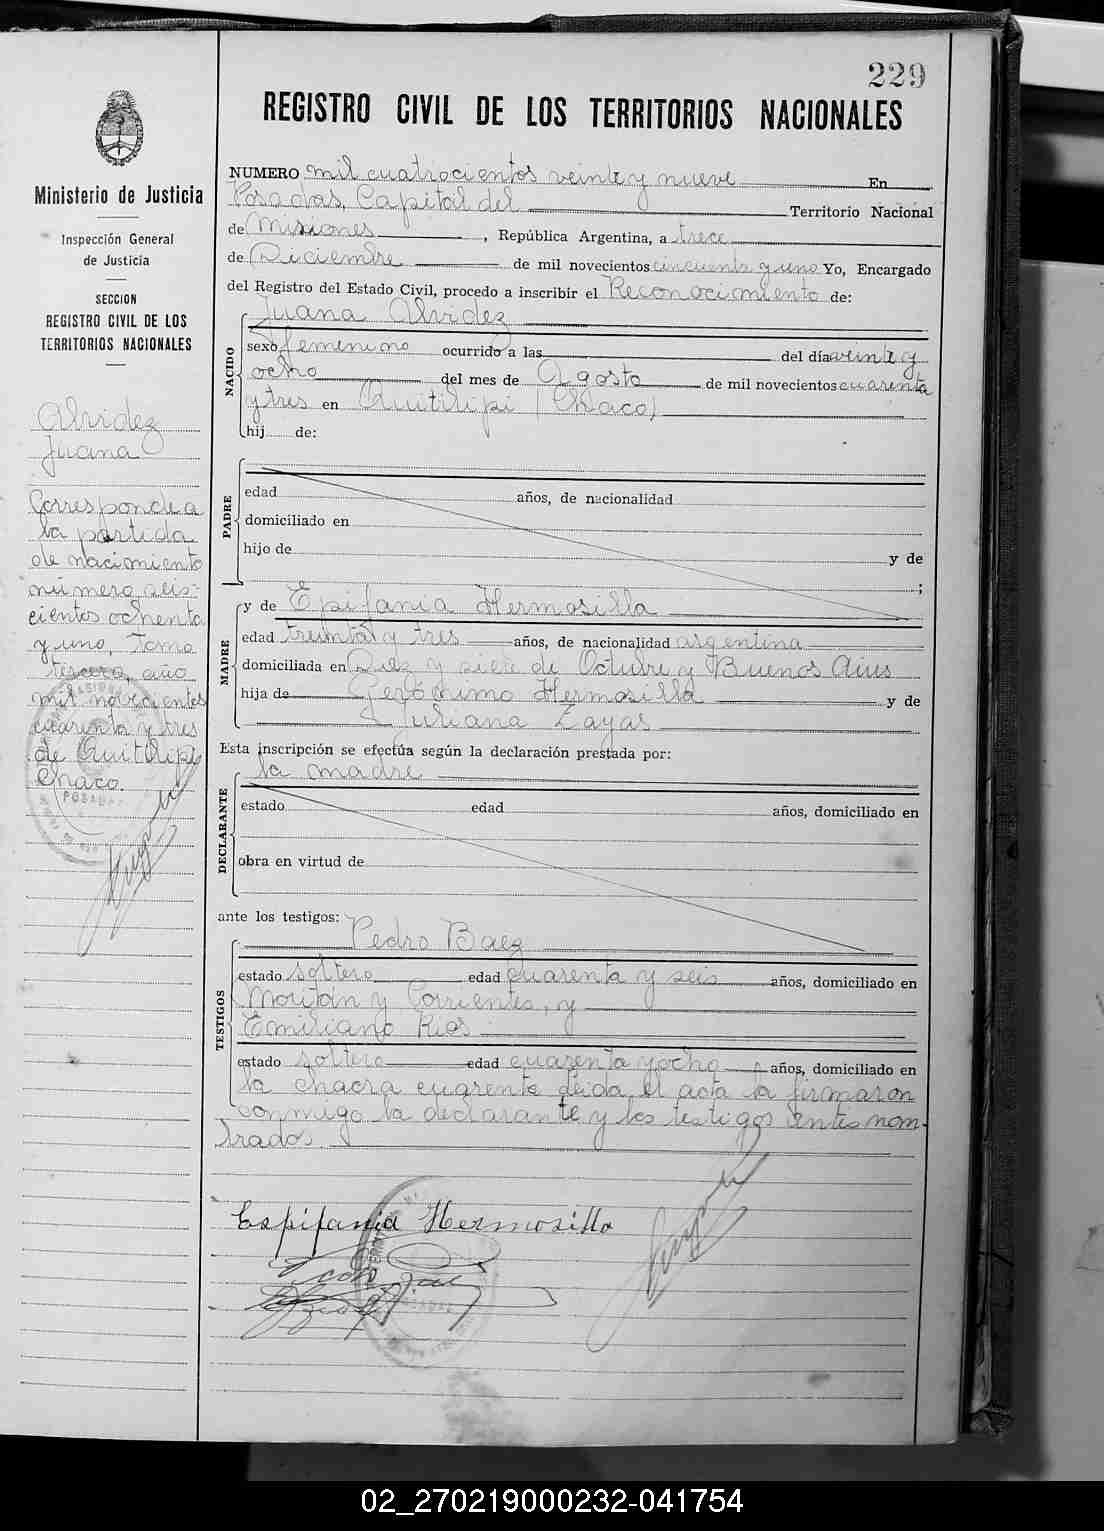 229
REGISTRO CIVIL DE LOS TERRITORIOS NACIONALES
Ministerio de Justicia
Inspección General
de Justicia
SECCION
REGISTRO CIVIL DE LOS
TERRITORIOS NACIONALES
Alvidez
Juana
Corresponde a
la partida
de nacimiento
número seis-
cientos ochenta
y uno, Tomo
tercero, año
mil novecientos
cuarenta y tres
de Quitilipi
Chaco.
POSADAS
NUMERO mil cuatrocientos veinte y nueve En
Posadas, Capital del Territorio Nacional
de Misiones, República Argentina, a trece
de Diciembre de mil novecientos cincuenta y uno Yo, Encargado
del Registro del Estado Civil, procedo a inscribir el Reconocimiento de:
Juana Alvidez
NACIDO
sexo femenino ocurrido a las del día veinte y
ocho del mes de Agosto de mil novecientos cuarenta
y tres en Quitilipi (Chaco)
hij de:
PADRE
edad años, de nacionalidad
domiciliado en
hijo de y de
;
MADRE
y de Epifania Hermosilla
edad treinta y tres años, de nacionalidad argentina
domiciliada en Diez y siete de Octubre y Buenos Aires
hija de Gerónimo Hermosilla y de
Juliana Zayas
Esta inscripción se efectúa según la declaración prestada por:
la madre
DECLARANTE
estado edad años, domiciliado en
obra en virtud de
ante los testigos:
Pedro Baez
TESTIGOS
estado soltero edad cuarenta y seis años, domiciliado en
Moritán y Corrientes, y
Emiliano Rios
estado soltero edad cuarenta y ocho años, domiciliado en
la chacra cuarenta leida el acta la firmaron
conmigo la declarante y los testigos antes nom-
brados.
Espifania Hermosilla
02_270219000232-041754